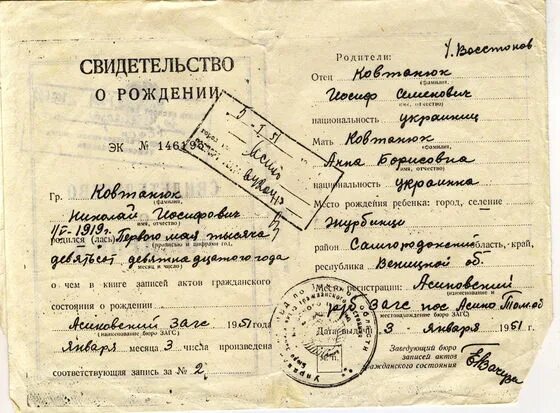 СВИДЕТЕЛЬСТВО
О РОЖДЕНИИ
ЭК № 146196
Гр. Ковтанюк
(фамилия,
Николай Иосифович
имя, отчество)
1/V-1919г.
родился (лась) Первого мая тысяча
(прописью и цифрами год,
девятьсот девятнадцатого года
месяц и число)
о чем в книге записей актов гражданского
состояния о рождении
Асиновский ЗАГС 1951 года
(наименование бюро ЗАГС)
января месяца 3 числа произведена
соответствующая запись за № 2
5-I-51
Асино
Родители:
Отец Ковтанюк
(фамилия,
Иосиф Семенович
имя, отчество)
национальность украинец
Мать Ковтанюк
(фамилия,
Анна Борисовна
имя, отчество)
национальность украинка
Место рождения ребенка: город, селение
Журбинцы
район Самгородокский область, край,
республика Веницкой об.
Место регистрации: Асиновский
(наименование и
р/б. ЗАГС пос Асино Том.об
местонахождение бюро ЗАГС)
Дата выдачи 3 января 1951 г.
Заведующий бюро
записей актов
гражданского состояния